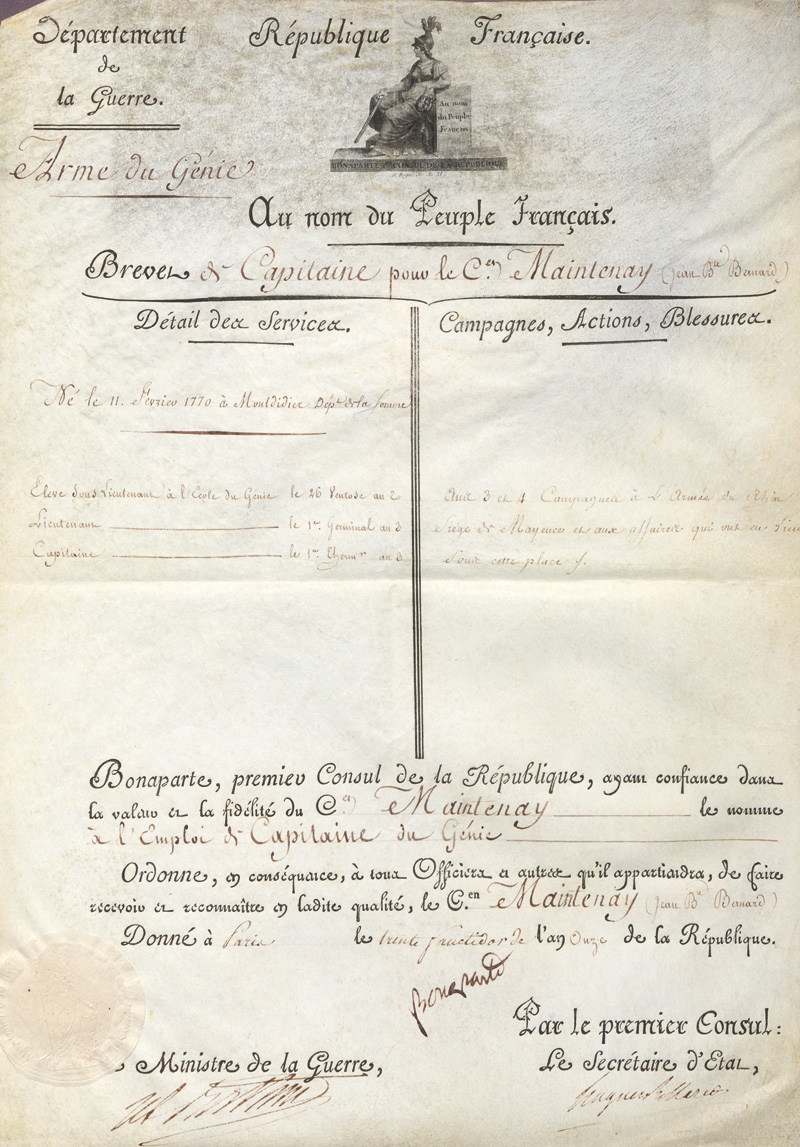 Département
de
la Guerre.
République Française.
Au nom
du Peuple
Français
BONAPARTE 1er CONSUL DE LA REPUBLIQUE
Arme du Génie
Au nom du Peuple Français.
Brevet de Capitaine pour le C.en Maintenay (Jean B.te Bernard)
Détail des Services.
Campagnes, Actions, Blessures.
Né le 11. Février 1770 à Montdidier Dép.t de la Somme
Eleve sous Lieutenant à l'Ecole du Génie le 26 Ventose an 2
Lieutenant le 1er Germinal an 3
Capitaine le 1er Therm.r an 3
Ans 3 et 4 Campagnes à L'Armée du Rhin
Siége de Mayence et aux affaires qui ont eu lieu
sous cette place
Bonaparte, premier Consul de la République, ayant confiance dans
la valeur et la fidélité du C.en Maintenay le nomme
à l'Emploi de Capitaine du Génie
Ordonne, en conséquence, à tous Officiers et autres qu'il appartiendra, de faire
recevoir et reconnaître en ladite qualité, le C.en Maintenay (Jean B.te Bernard)
Donné à Paris le trente fructidor de l'an Onze de la République.
Bonaparte
Par le premier Consul:
Ministre de la Guerre,
Le Secrétaire d'Etat,
Hugues B. Maret